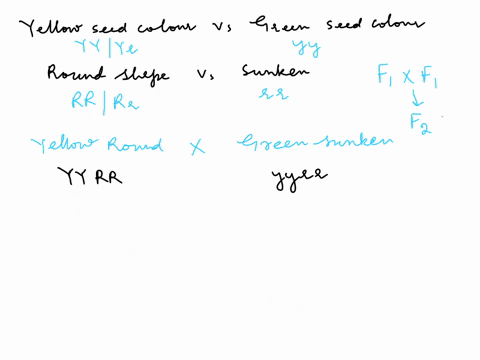 Yellow seed colour vs Green seed colour
YY | Ye yy
Round shape vs Sunken
RR | Rr rr
F1 X F1
↓
F2
Yellow Round X Green sunken
YY RR yyrr